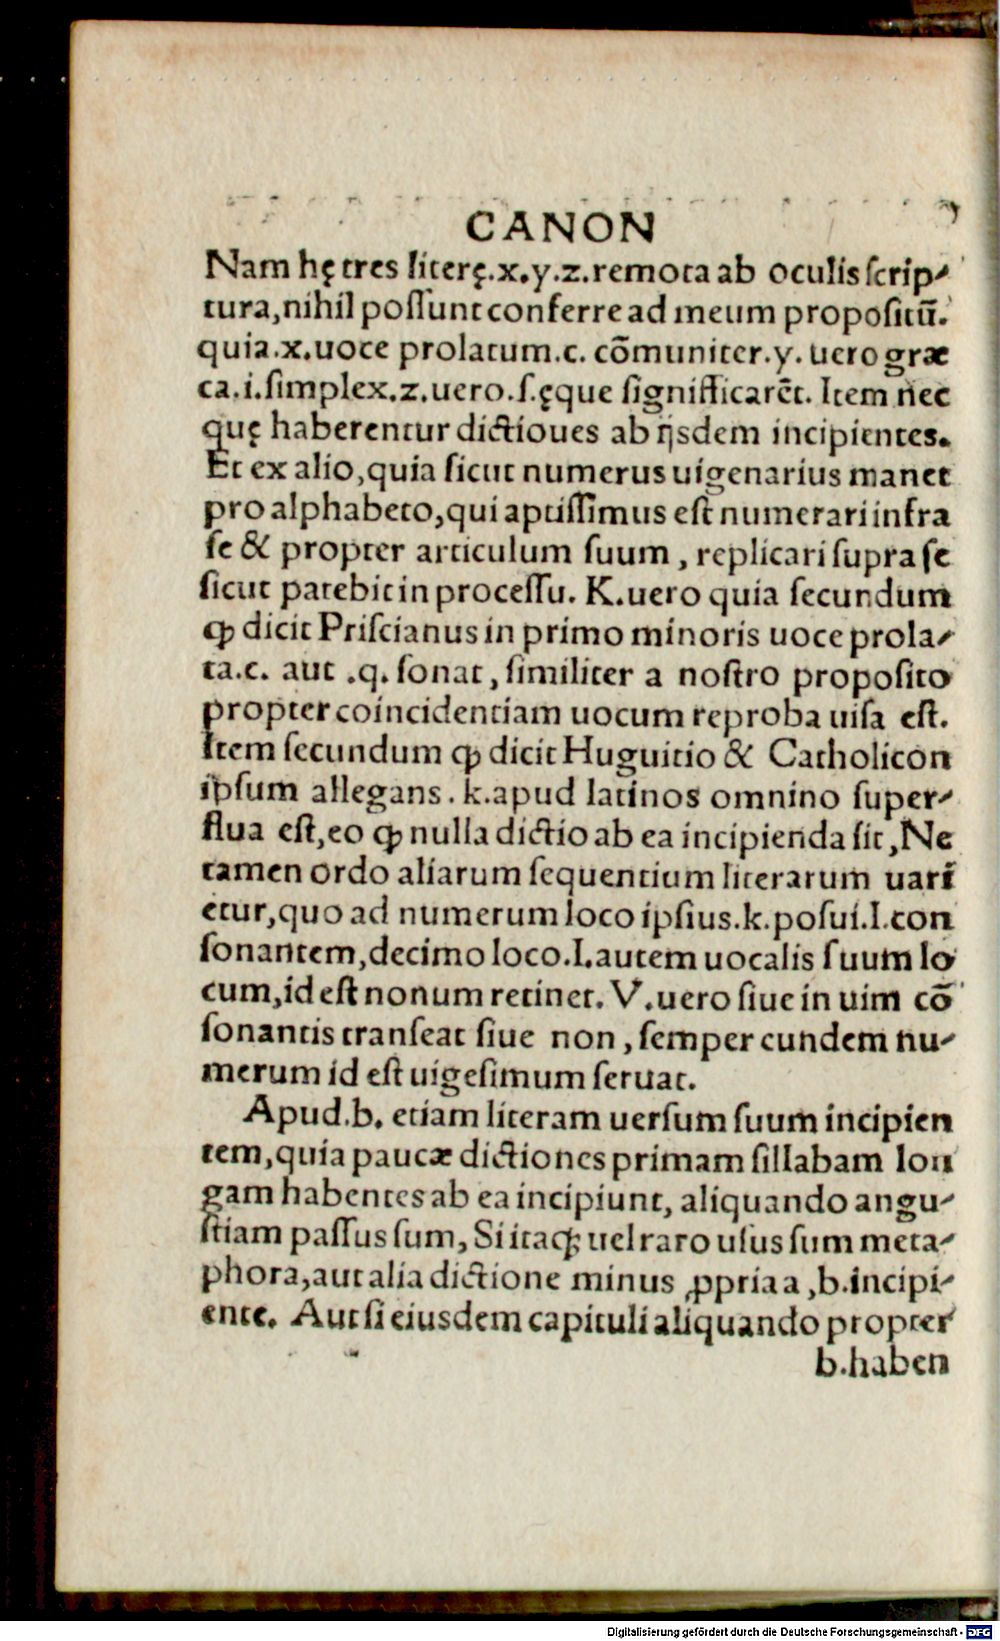 CANON
Nam hę tres literę.x.y.z.remota ab oculis ſcrip-
tura,nihil poſſunt conferre ad meum propoſitū.
quia.x.uoce prolatum.c. cōmuniter.y. uero græ
ca.i.ſimplex.z.uero.ſ.ęque ſignifficarēt. Item nec
quę haberentur dictioues ab ijsdem incipientes.
Et ex alio,quia ſicut numerus uigenarius manet
pro alphabeto,qui aptiſſimus eſt numerari infra
ſe & propter articulum ſuum , replicari ſupra ſe
ſicut patebit in proceſſu. K.uero quia ſecundum
ꝙ dicit Priſcianus in primo minoris uoce prola-
ta.c. aut .q. ſonat , ſimiliter a noſtro propoſito
propter coincidentiam uocum reproba uiſa eſt.
Item ſecundum ꝙ dicit Huguitio & Catholicon
ipſum allegans. k.apud latinos omnino ſuper-
flua eſt,eo ꝙ nulla dictio ab ea incipienda ſit,Ne
tamen ordo aliarum ſequentium literarum uarī
etur,quo ad numerum loco ipſius.k.poſui.I.con
ſonantem,decimo loco.I.autem uocalis ſuum lo
cum,id eſt nonum retinet. V.uero ſiue in uim cō
ſonantis tranſeat ſiue non , ſemper eundem nu-
merum id eſt uigeſimum ſeruat.
Apud.b. etiam literam uerſum ſuum incipien
tem,quia paucæ dictiones primam ſillabam lon
gam habentes ab ea incipiunt, aliquando angu-
ſtiam paſſus ſum, Si itaqꝫ uel raro uſus ſum meta-
phora,aut alia dictione minus ꝓpria a ,b.incipi-
ente. Aut ſi eiusdem capituli aliquando propter
b.haben
Digitalisierung gefördert durch die Deutsche Forschungsgemeinschaft - DFG